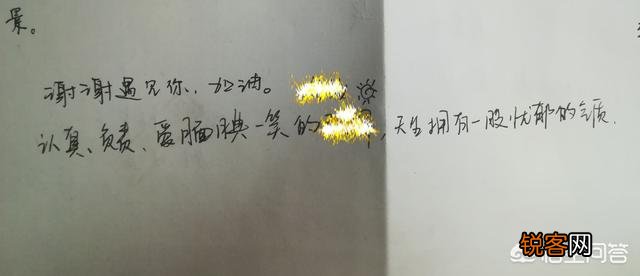 景。
谢谢遇见你,加油。
认真、负责、爱腼腆一笑的,天生拥有一股忧郁的气质.
锐客网
悟空问答